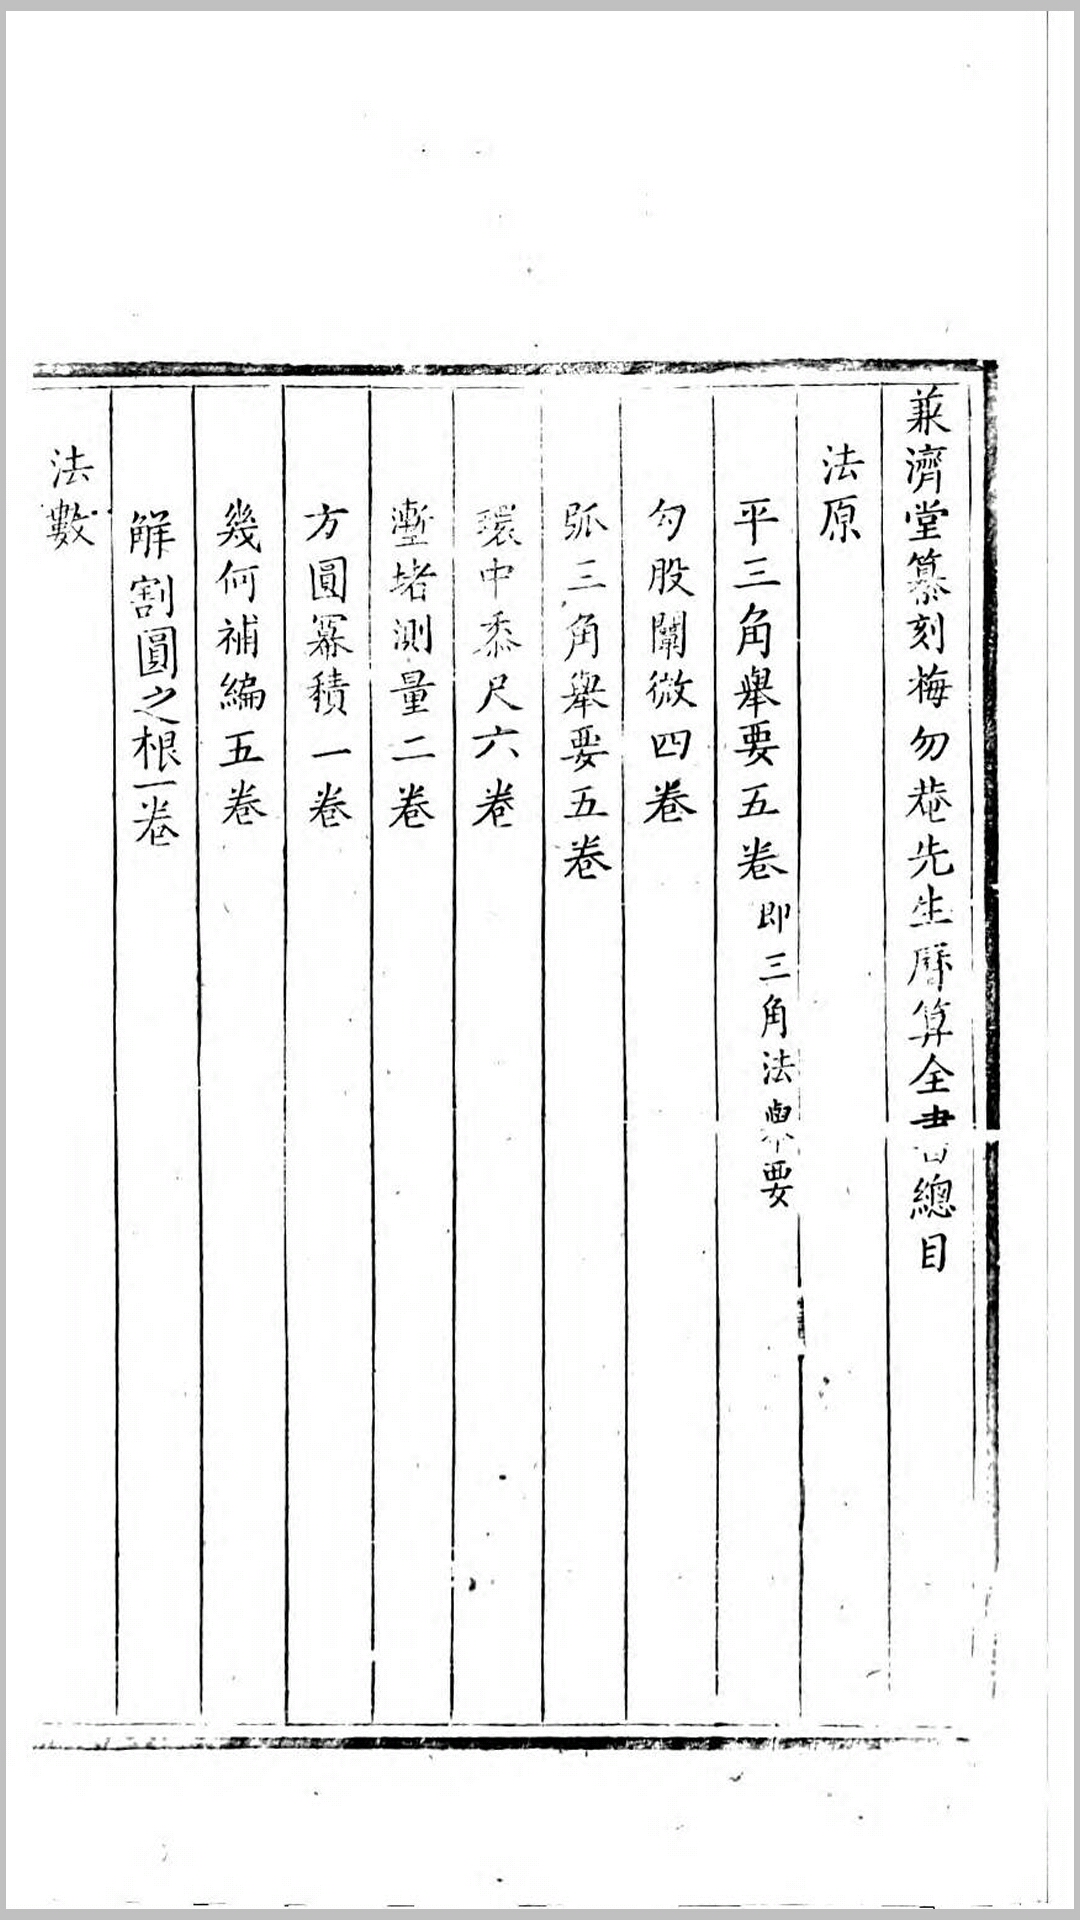 兼濟堂纂刻梅勿菴先生曆算全書總目
法原
平三角舉要五卷即三角法舉要
勾股闡微四卷
弧三角舉要五卷
環中黍尺六卷
塹堵測量二卷
方圓冪積一卷
幾何補編五卷
解割圓之根一卷
法數